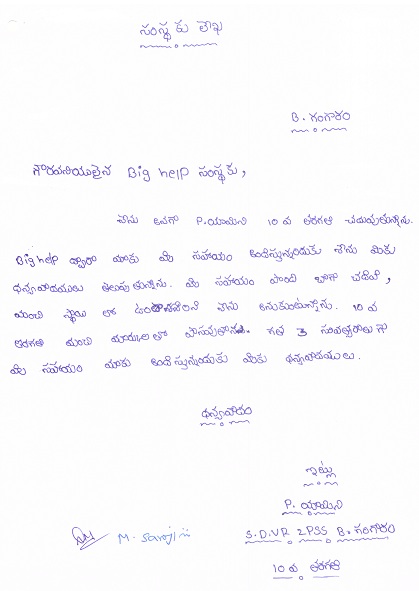 సంస్థకు లేఖ
B. గంగారం
గౌరవనీయులైన Big help సంస్థకు,
నేను అనగా P.యామిని 10 వ తరగతి చదువుతున్నాను.
Big help ద్వారా మాకు మీ సహాయం అందిస్తున్నందుకు నేను మీకు
ధన్యవాదములు తెలుపుతున్నాను. మీ సహాయం పొంది బాగా చదివి,
మంచి స్థాయి లో ఉండాలని నేను అనుకుంటున్నాను. 10 వ
తరగతి మంచి మార్కులతో పాసవుతాను. గత 3 సంవత్సరాలుగా
మీ సహాయం మాకు అందిస్తున్నందుకు మీకు ధన్యవాదములు.
ధన్యవాదం
ఇట్లు
P. యామిని
M. Sarojini S.D.VR ZPSS B. గంగారం
10 వ తరగతి